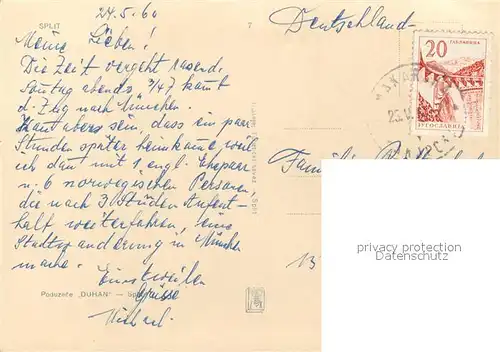 SPLIT
24.5.60
7
Deutschland
Meine Lieben!
Die Zeit vergeht rasend.
Sonntag abends 3/47 kommt
d. Zug nach München.
Kann aber sein, dass ein paar
Stunden später heimkomme, weil
ich dann mit 1 engl. Ehepaar
u. 6 norwegischen Personen,
die nach 3 Stunden Aufent-
halt weiterfahren, eine
Stadtwanderung in München
mache.
Einstweilen
Grüsse
Michael
Familie
13
20
ЈУГОСЛАВИЈА
JUGOSLAVIJA
MAKARSKA
Poduzeće „DUHAN” — Split
privacy protection
Datenschutz